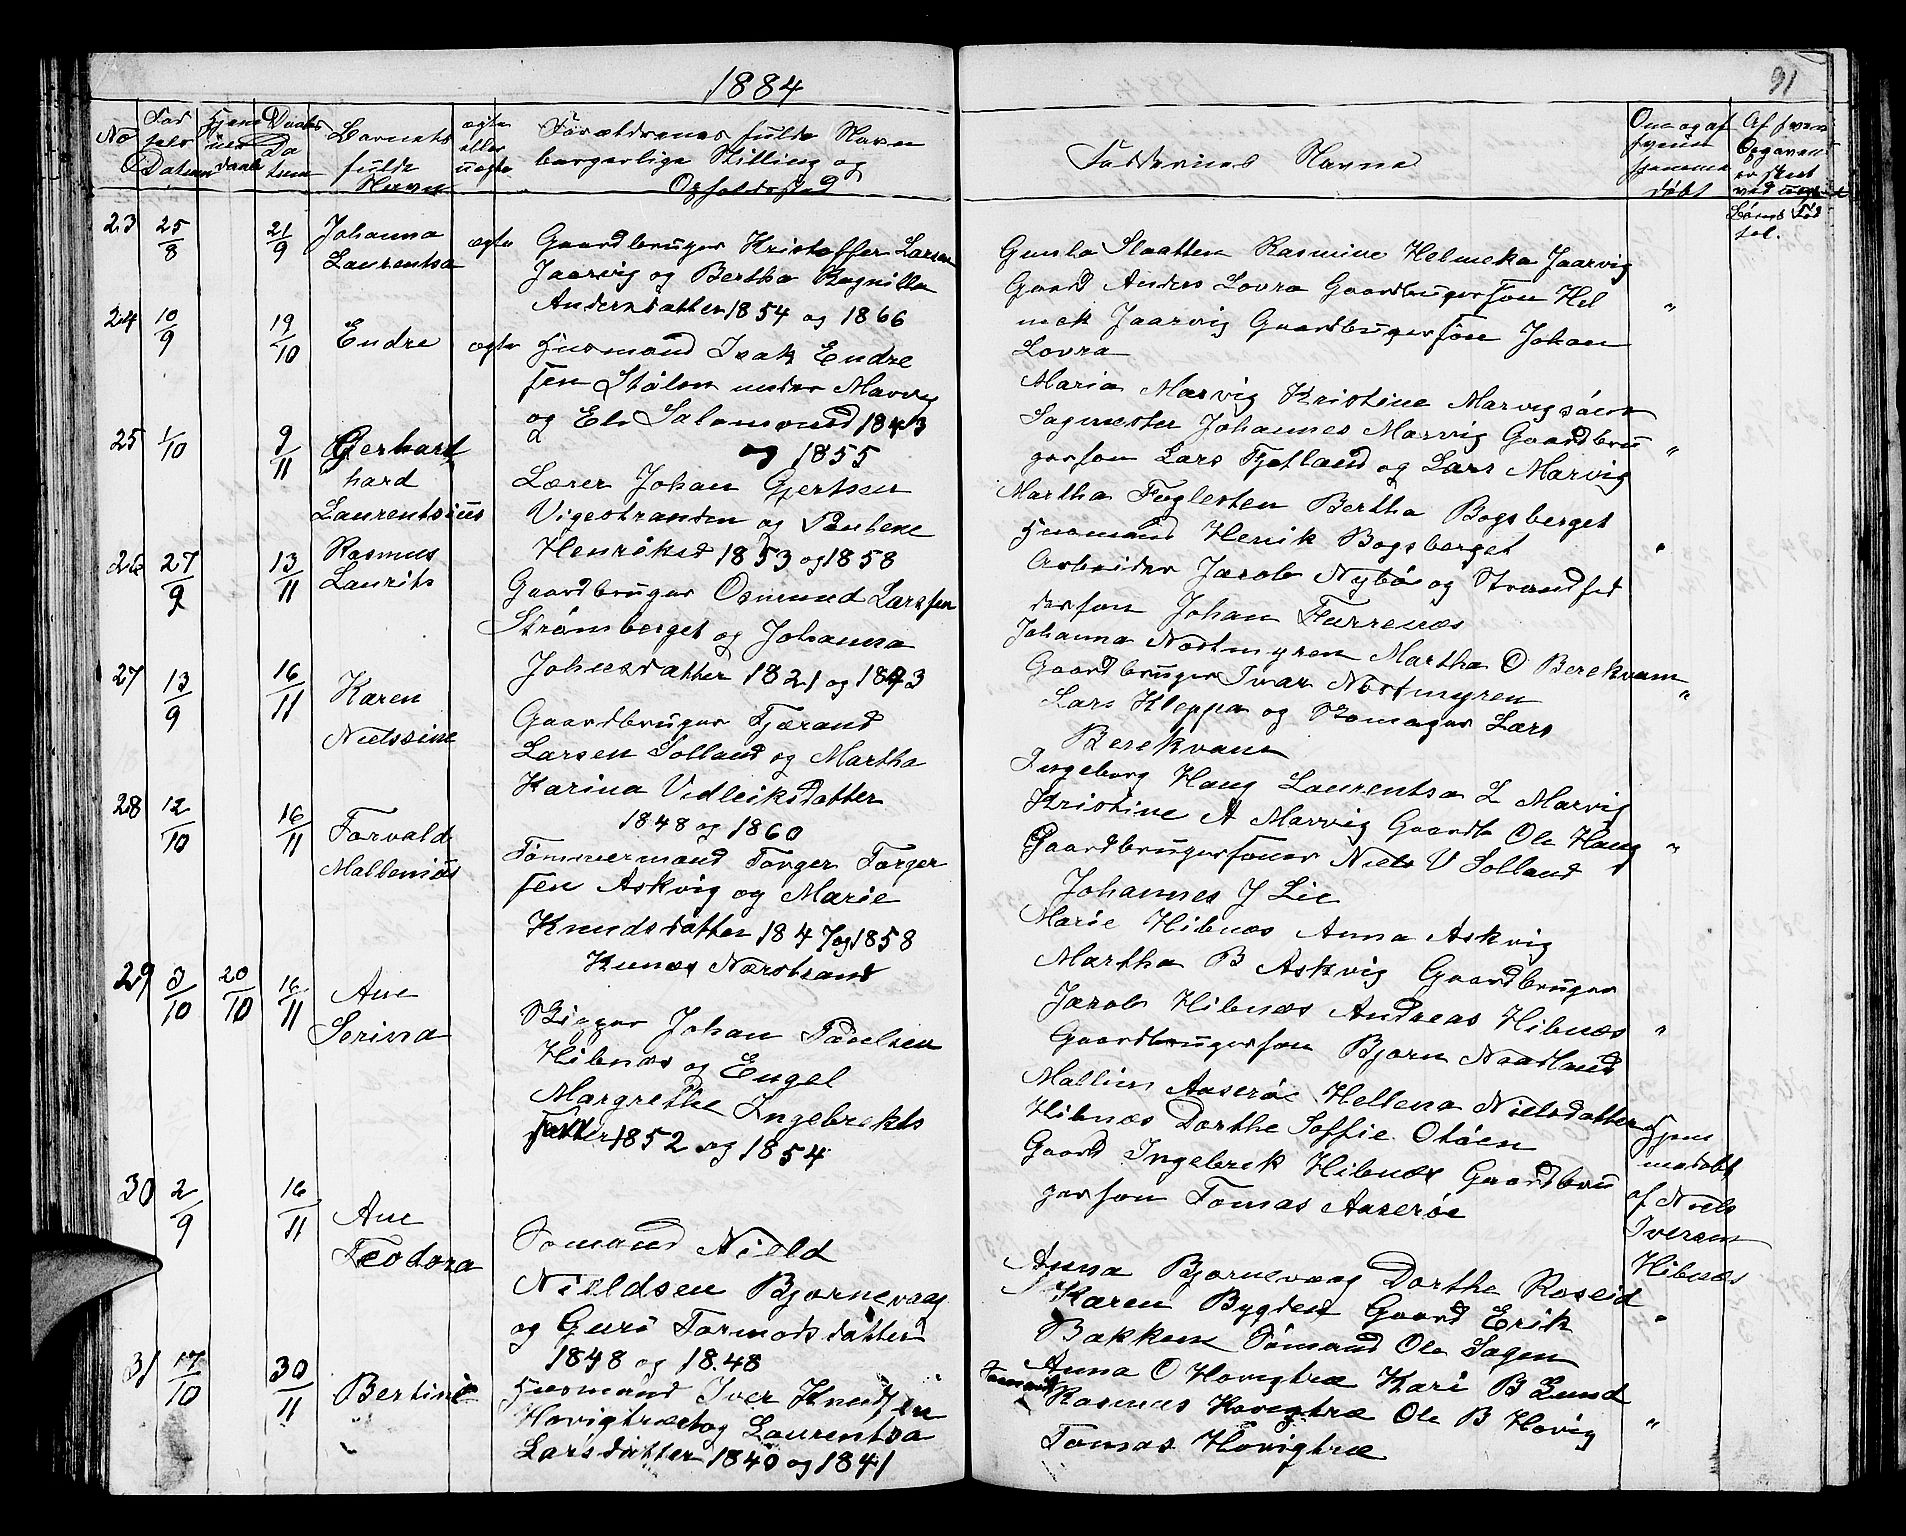 1884
91
No
Fød
sels
Datum
Hjem
me
daab
Daabs
Da
tum
Barnets
fulde
Navn
ægte
eller
uægte
Forældrenes fulde Navn
borgerlige Stilling og
Opholdssted
Faddernes Navne
Om og af
hvem
hjemme
døbt
Børns Fød
sel.
23 25/8 21/9 Johanna
Laurentsa
ægte
Gaardbruger Kristoffer Larsen
Jaarvig og Bertha Ragnilla
Andersdatter 1854 og 1866
Gunla Slaatten Rasmine Helmeka Jaarvig
Gaard Anders Lovra Gaardbrugersøn Hel
mek Jaarvig Gaardbrugersøn Johan
Lovra
"
24 10/9 19/10 Endre
ægte
Husmand Isak Endre
sen Stølen under Marvig
og Eli Salamonsd 1843
og 1855
Maria Marvig Kristine Marvigsåen
Sagmester Johannes Marvig Gaardbru
gersøn Lars Fjetland og Lars Marvig
"
25 1/10 9/11 Gerhart
hard
Laurentsius
Lærer Johan Gjertsen
Vigestranden og Paulene
Henriksd 1853 og 1858
Martha Foglesten Bertha Bogsberget
Husmand Henik Bogsberget
Arbeider Jacob Nybø og Strandsid
dersøn Johan Furrenæs
"
26 27/9 13/11 Rasmus
Laurits
Gaardbruger Osmund Larssen
Strømberget og Johanna
Johnsdatter 1821 og 1843
Johanna Nordmyren Martha O Berekvam
Gaardbruger Ivar Nordmyren
Lars Kleppa og Skomager Lars
Berekvam
"
27 13/9 16/11 Karen
Nielssine
Gaardbruger Tjærand
Larsen Solland og Martha
Karina Vidleiksdatter
1848 og 1860
Ingeborg Haug Laurentsa L Marvig
Kristine A Marvig Gaardb Ole Haug
Gaardbrugersøner Niels V Solland
Johannes J Lie
"
28 12/10 16/11 Torvald
Mallenius
Tømmermand Torger Torger
sen Askvig og Marie
Knudsdatter 1847 og 1858
Hunæs Nærstrand
Marie Hibnæs Anna Askvig
Martha B Askvig Gaardbruger
Jacob Hibnæs Andreas Hibnæs
Gaardbrugersøn Bjørn Naadland
"
29 3/10 20/10 16/11 Ane
Serina
Skipper Johan Poulsen
Hibnæs og Engel
Margrethe Ingebrekts
datter 1852 og 1854
Mallin Aaserøe Hellena Nielsdatter
Hibnæs Dorthe Soffie Otøen
Gaard Ingebrek Hibnæs Gaardbru
gersøn Tomas Aaserøe
Hjem
medøbt
af Niels
Iversen
Hibnæs
30 2/9 16/11 Ane
Teodora
Sømand Nield
Nieldsen Bjørnevaag
og Guro Tormodsdatter
1848 og 1848
Anna Bjørnevaag Dorthe Roseid
Karen Bygden Gaard Erik
Bakken Sømand Ole Sagen
"
31 17/10 30/11 Bertine
Husmand Iver Knudsen
Hovigtræet og Laurentsa
Larsdatter 1840 og 1841
Anna O Hovigtræ Kari B Lund
Rasmus Hovigtræ Ole B Hovig
Tomas Hovigtræ
"